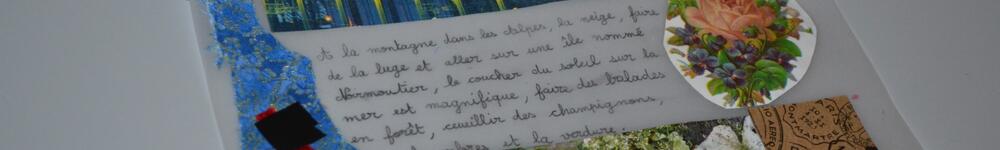 A la montagne dans les Alpes, la neige, faire
de la luge et aller sur une île nommé
Normoutier, le coucher du soleil sur la
mer est magnifique, faire des balades
en forêt, ceuillir des champignons,
et la verdure.
PARIS
MONTMARTRE